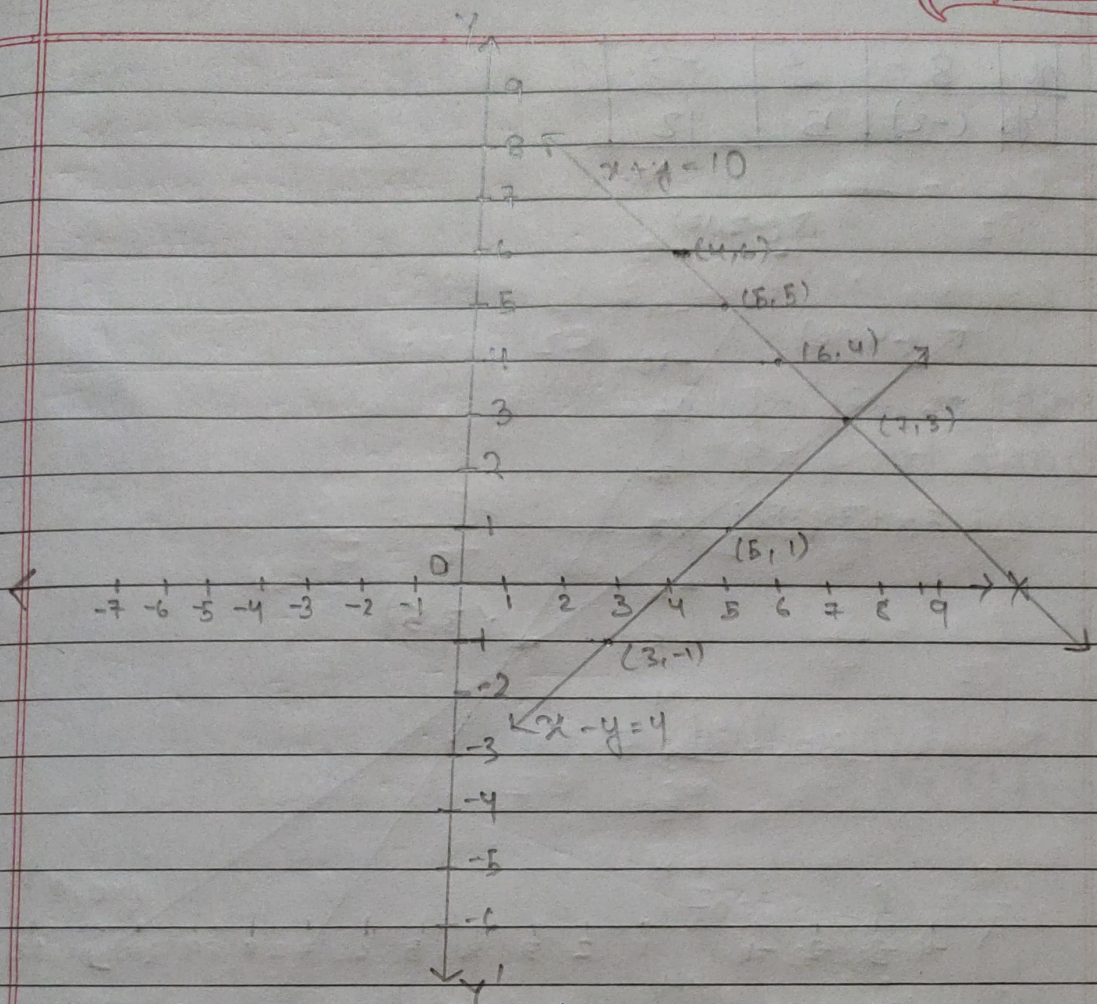 Y
9
8
x+y=10
7
6 (4,6)
5 (5,5)
4 (6,4)
3 (7,3)
2
1
(5, 1)
0
-7 -6 -5 -4 -3 -2 -1 1 2 3 4 5 6 7 8 9 X
-1
(3,-1)
-2
x-y=4
-3
-4
-5
-6
Y'